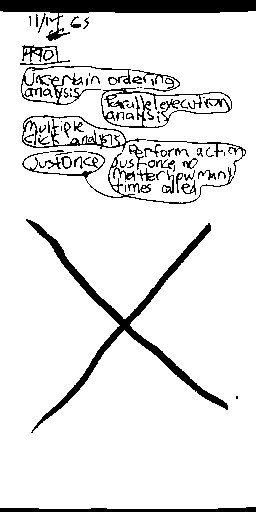 Uncertain ordering
analysis
Parallel execution
analysis
multiple
click analysis
JustOnce
Perform action
just once no
matter how many
times called